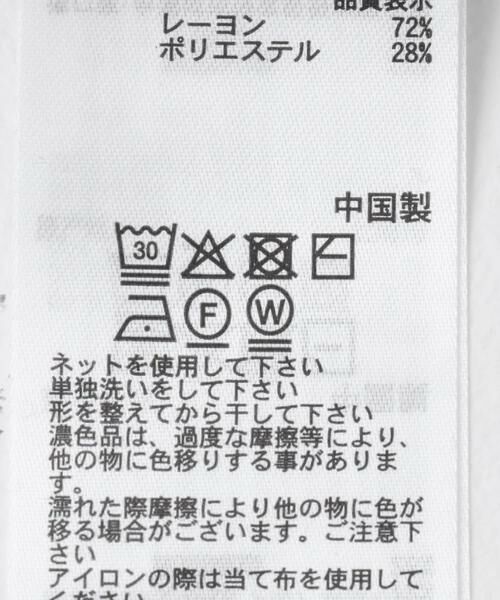 品質表示
レーヨン 72%
ポリエステル 28%
中国製
30
F W
ネットを使用して下さい
単独洗いをして下さい
形を整えてから干して下さい
濃色品は、過度な摩擦等により、
他の物に色移りする事がありま
す。
濡れた際摩擦により他の物に色が
移る場合がございます。ご注意下
さい
アイロンの際は当て布を使用して
ください